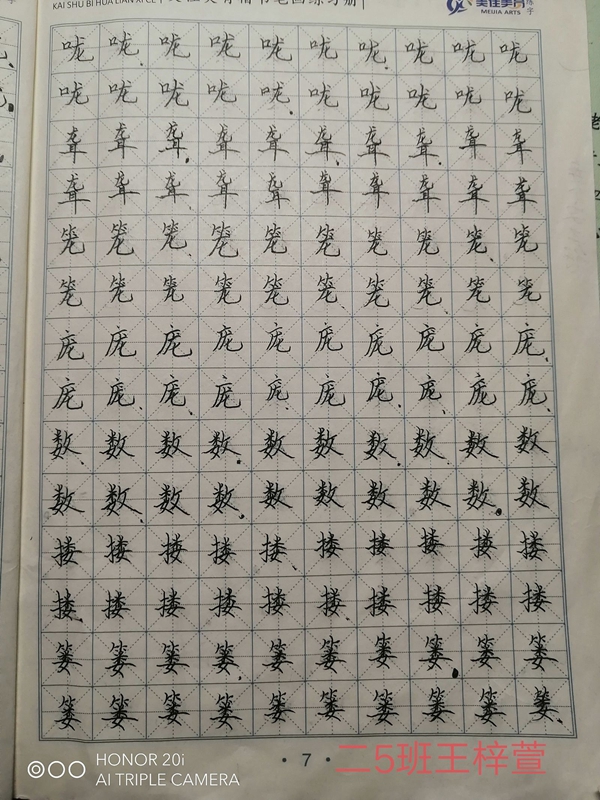 KAI SHU BI HUA LIAN XI CE
美佳美育
MEIJIA ARTS
咙 咙 咙 咙 咙 咙 咙 咙 咙 咙
咙 咙 咙 咙 咙 咙 咙 咙 咙 咙
聋 聋 聋 聋 聋 聋 聋 聋 聋 聋
聋 聋 聋 聋 聋 聋 聋 聋 聋 聋
笼 笼 笼 笼 笼 笼 笼 笼 笼 笼
笼 笼 笼 笼 笼 笼 笼 笼 笼 笼
庞 庞 庞 庞 庞 庞 庞 庞 庞 庞
庞 庞 庞 庞 庞 庞 庞 庞 庞 庞
数 数 数 数 数 数 数 数 数 数
数 数 数 数 数 数 数 数 数 数
搂 搂 搂 搂 搂 搂 搂 搂 搂 搂
搂 搂 搂 搂 搂 搂 搂 搂 搂 搂
篓 篓 篓 篓 篓 篓 篓 篓 篓 篓
篓 篓 篓 篓 篓 篓 篓 篓 篓 篓
7
二5班王梓萱
HONOR 20i
AI TRIPLE CAMERA